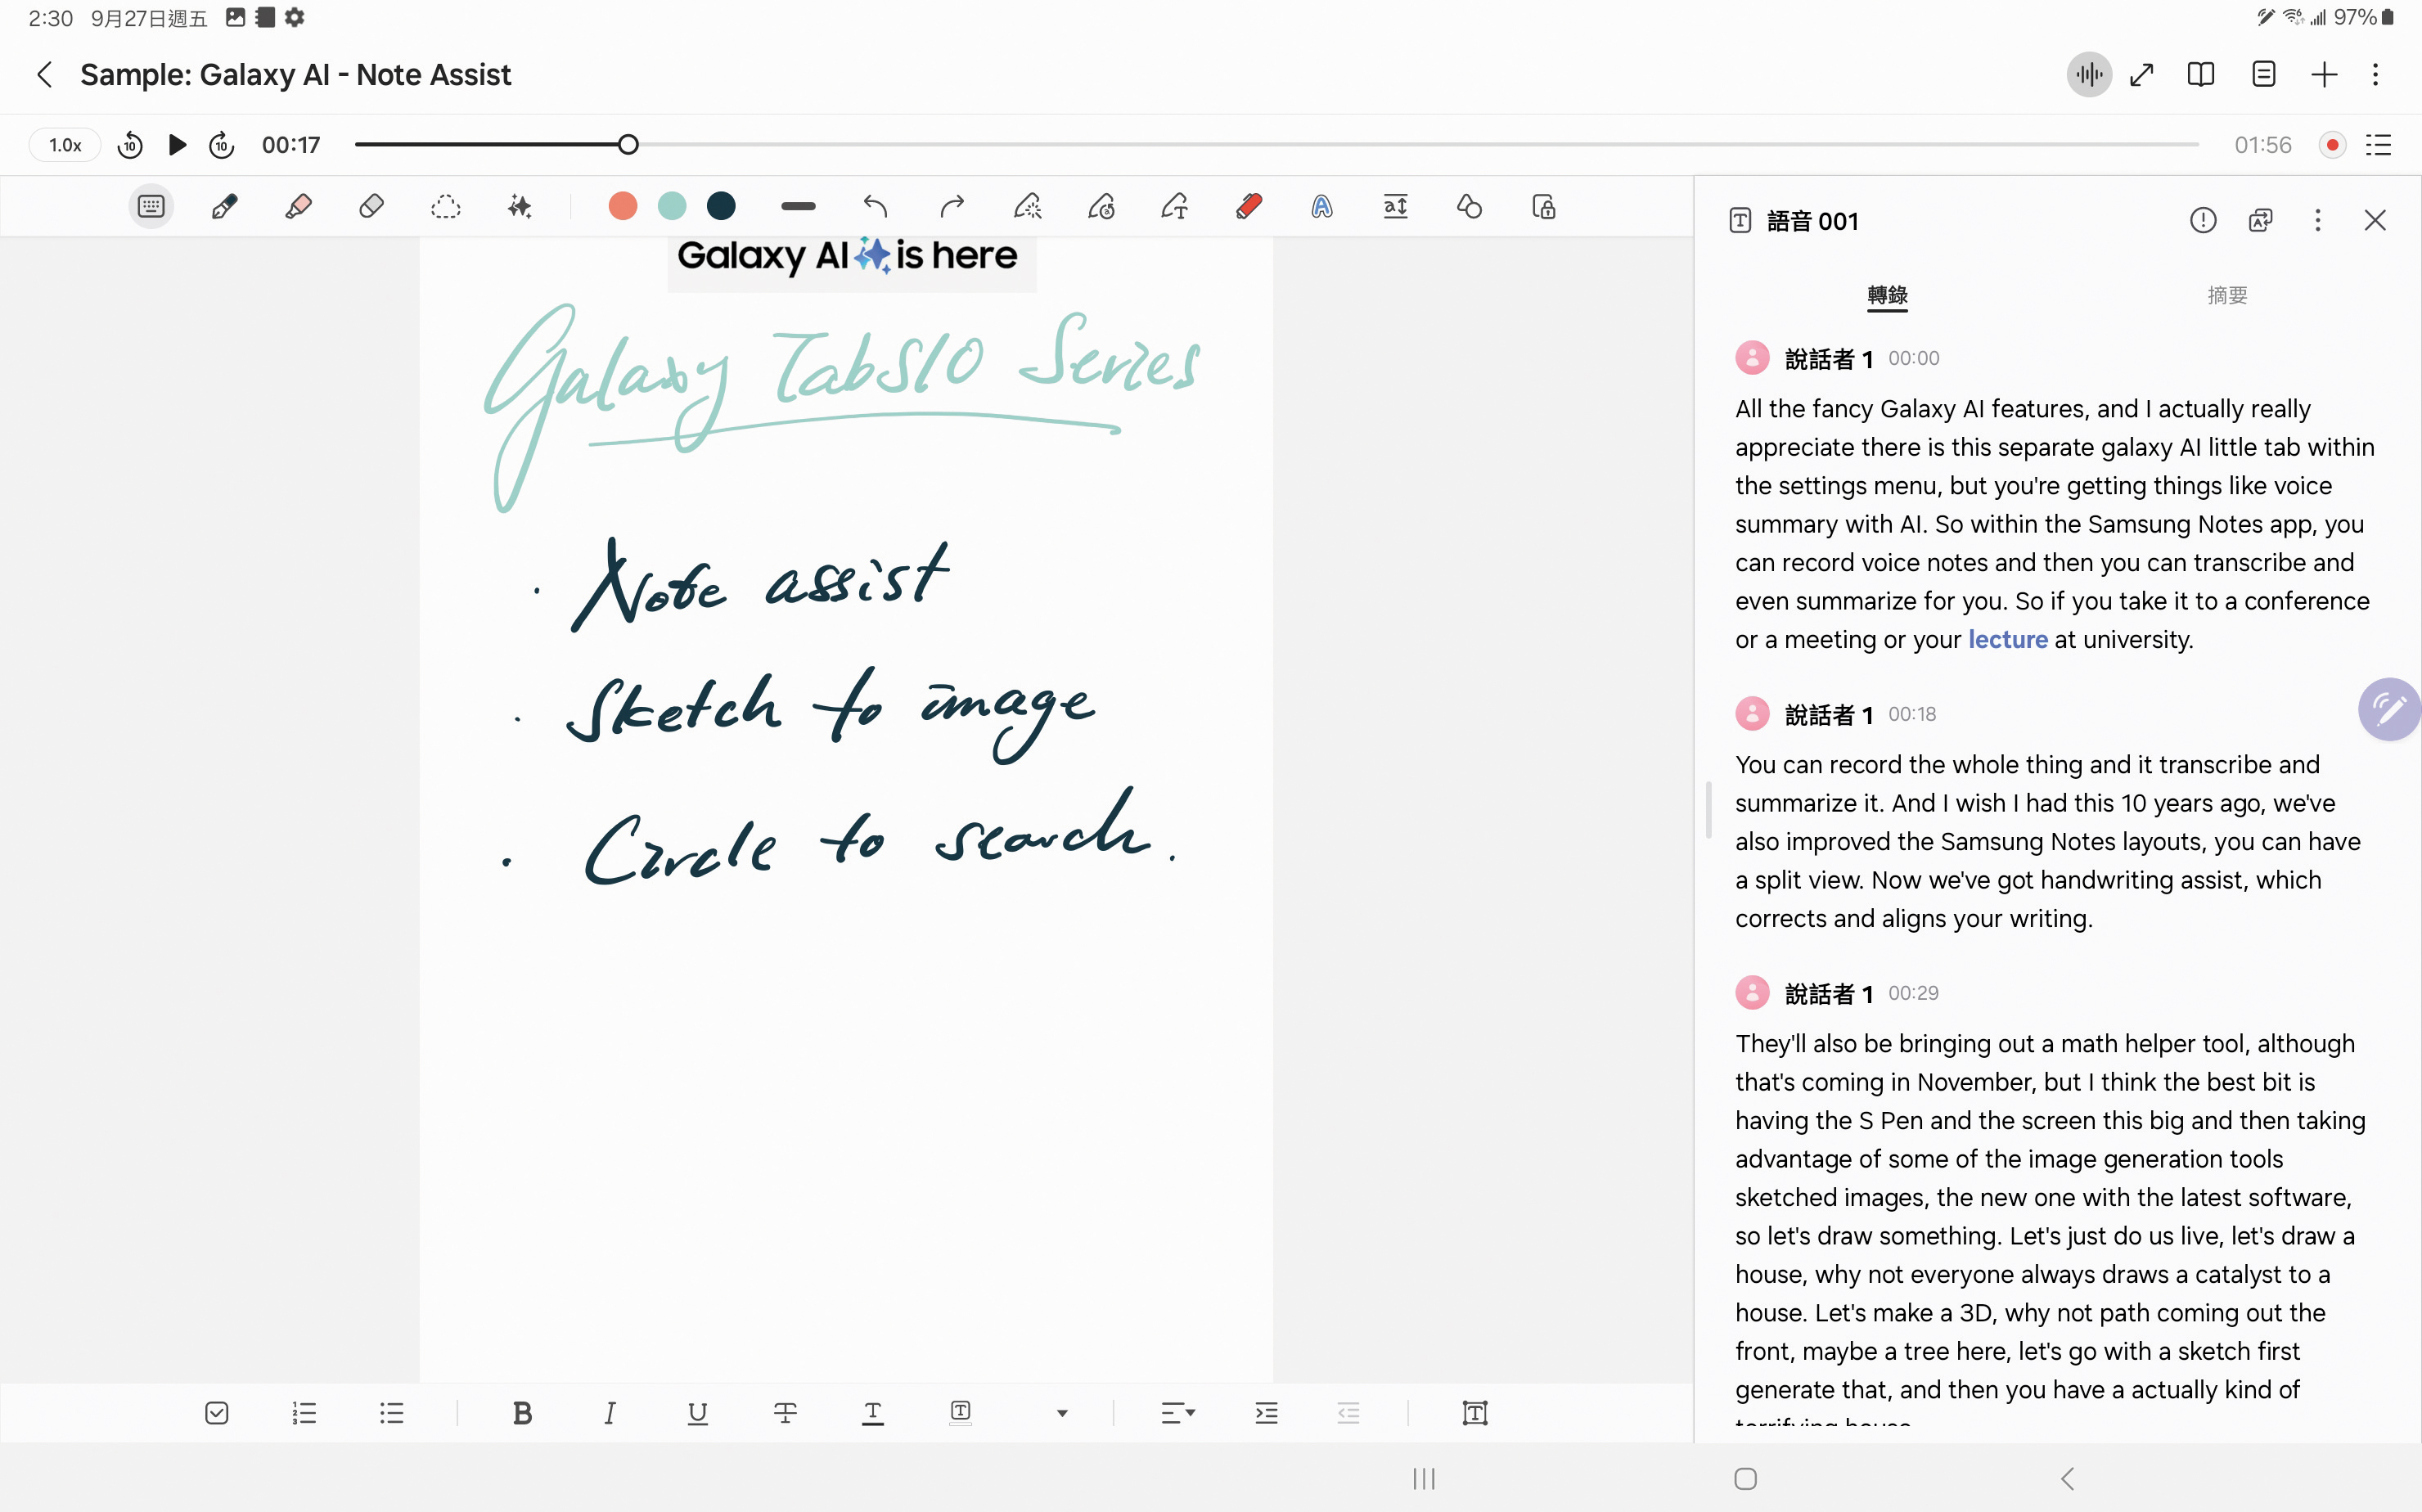 2:30 9月27日週五 97%
Sample: Galaxy AI - Note Assist
1.0x 10 10 00:17 01:56
Galaxy AI is here
Galaxy Tab S10 Series
· Note assist
· Sketch to image
· Circle to search.
語音 001
轉錄 摘要
說話者 1 00:00
All the fancy Galaxy AI features, and I actually really
appreciate there is this separate galaxy AI little tab within
the settings menu, but you're getting things like voice
summary with AI. So within the Samsung Notes app, you
can record voice notes and then you can transcribe and
even summarize for you. So if you take it to a conference
or a meeting or your lecture at university.
說話者 1 00:18
You can record the whole thing and it transcribe and
summarize it. And I wish I had this 10 years ago, we've
also improved the Samsung Notes layouts, you can have
a split view. Now we've got handwriting assist, which
corrects and aligns your writing.
說話者 1 00:29
They'll also be bringing out a math helper tool, although
that's coming in November, but I think the best bit is
having the S Pen and the screen this big and then taking
advantage of some of the image generation tools
sketched images, the new one with the latest software,
so let's draw something. Let's just do us live, let's draw a
house, why not everyone always draws a catalyst to a
house. Let's make a 3D, why not path coming out the
front, maybe a tree here, let's go with a sketch first
generate that, and then you have a actually kind of